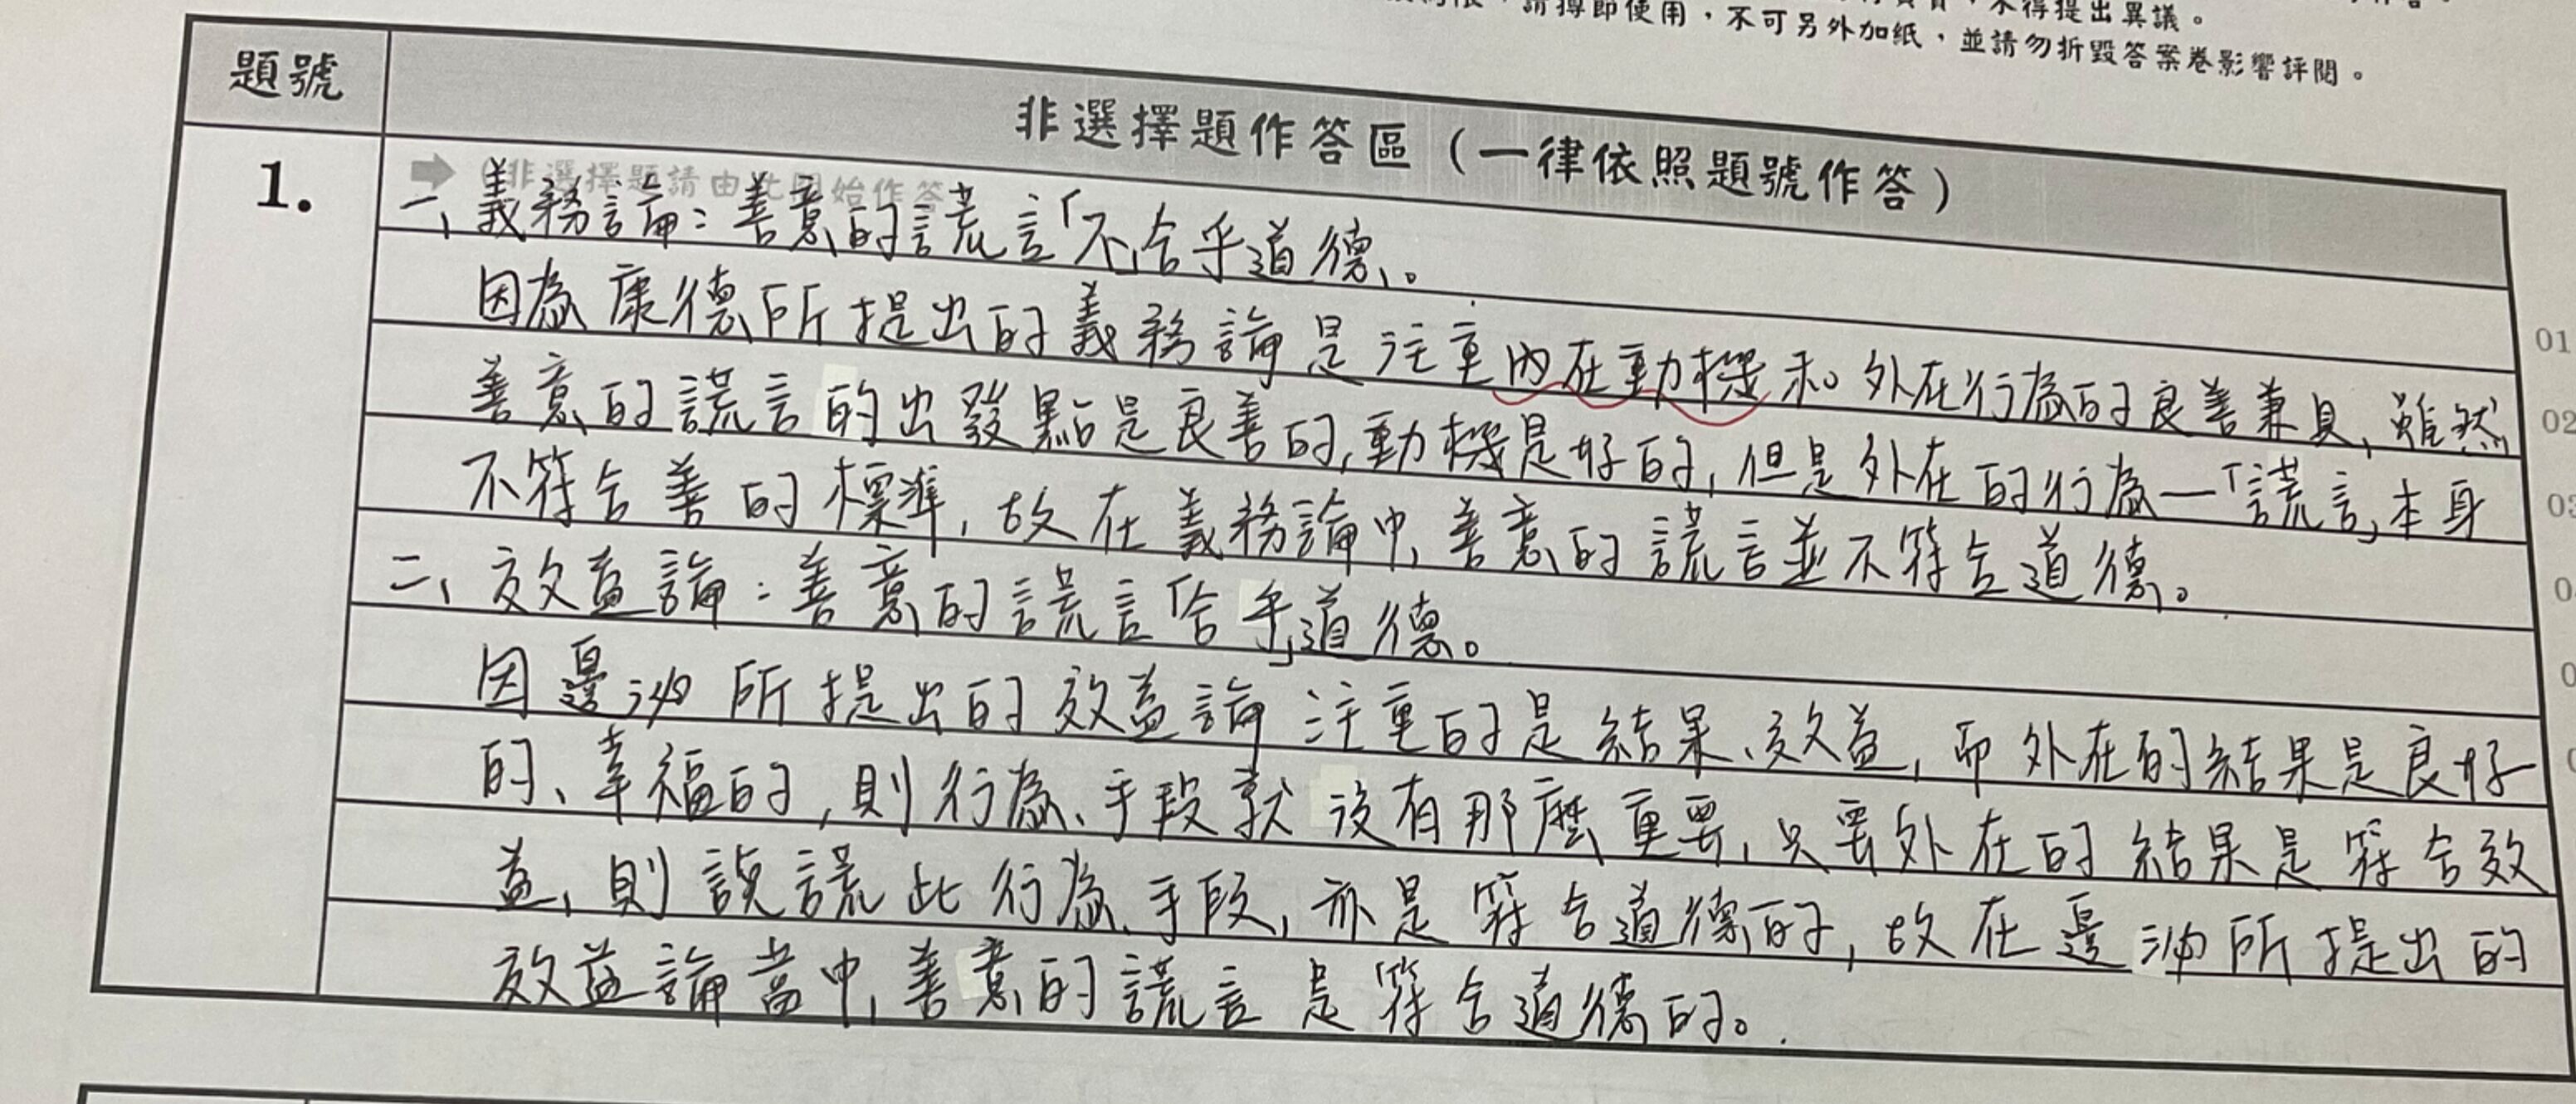 請撙即使用，不可另外加紙，並請勿折毀答案卷影響評閱。
不得提出異議。
題號
非選擇題作答區（一律依照題號作答）
1.
（非選擇題請由此開始作答
一、義務論：善意的謊言「不」合乎道德。
因為康德所提出的義務論是注重內在動機和外在行為的良善兼具，雖然
善意的謊言的出發點是良善的，動機是好的，但是外在的行為—「謊言」本身
不符合善的標準，故在義務論中，善意的謊言並不符合道德。
二、效益論：善意的謊言「合乎」道德。
因邊沁所提出的效益論注重的是結果、效益，而外在的結果是良好
的、幸福的，則行為、手段就沒有那麼重要，只要外在的結果是符合效
益，則說謊此行為、手段，亦是符合道德的，故在邊沁所提出的
效益論當中，善意的謊言是符合道德的。
01
02
03